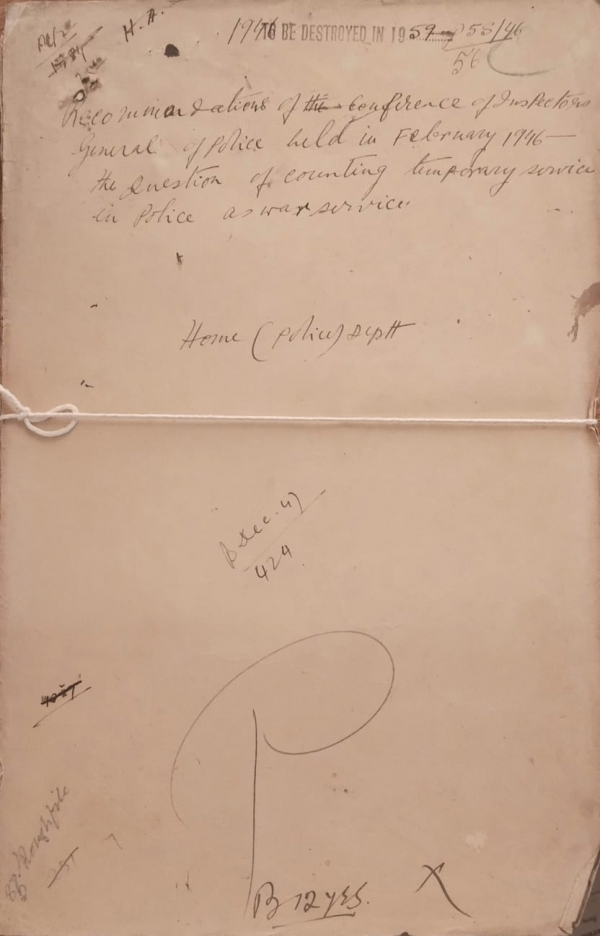 H.A.
1946 TO BE DESTROYED IN 1959 P 55/46
56
Recommendations of the Conference of Inspectors
General of Police held in February 1946—
the Question of counting temporary service
in Police as war service
Home (Police) Deptt
B Dec. 47
424
P
B 12 yrs.
X